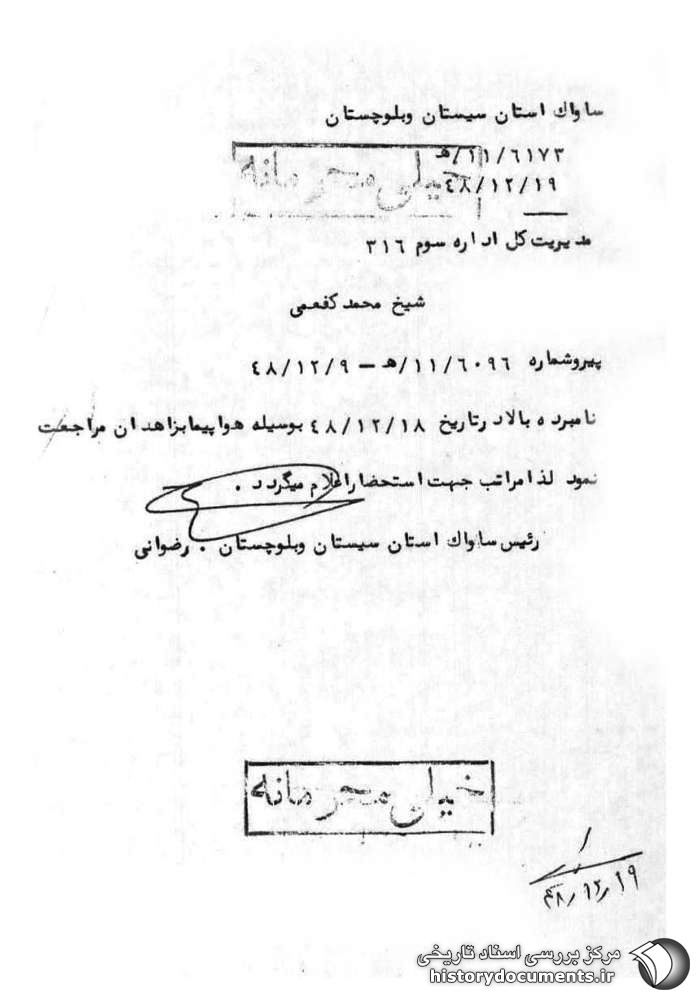 ساواك استان سیستان وبلوچستان
۱۱/۶۱۷۳/هـ
۴۸/۱۲/۱۹
خیلی محرمانه
مدیریت کل اداره سوم ۳۱۶
شیخ محمد کفعمی
پیروشماره ۱۱/۶۰۹۶/هـ – ۴۸/۱۲/۹
نامبرده بالا درتاریخ ۴۸/۱۲/۱۸ بوسیله هواپیما بزاهدان مراجعت
نمود لذا مراتب جهت استحضار اعلام میگردد .
رئیس ساواك استان سیستان وبلوچستان . رضوانی
خیلی محرمانه
۴۸/۱۲/۱۹
مرکز بررسی اسناد تاریخی
historydocuments.ir